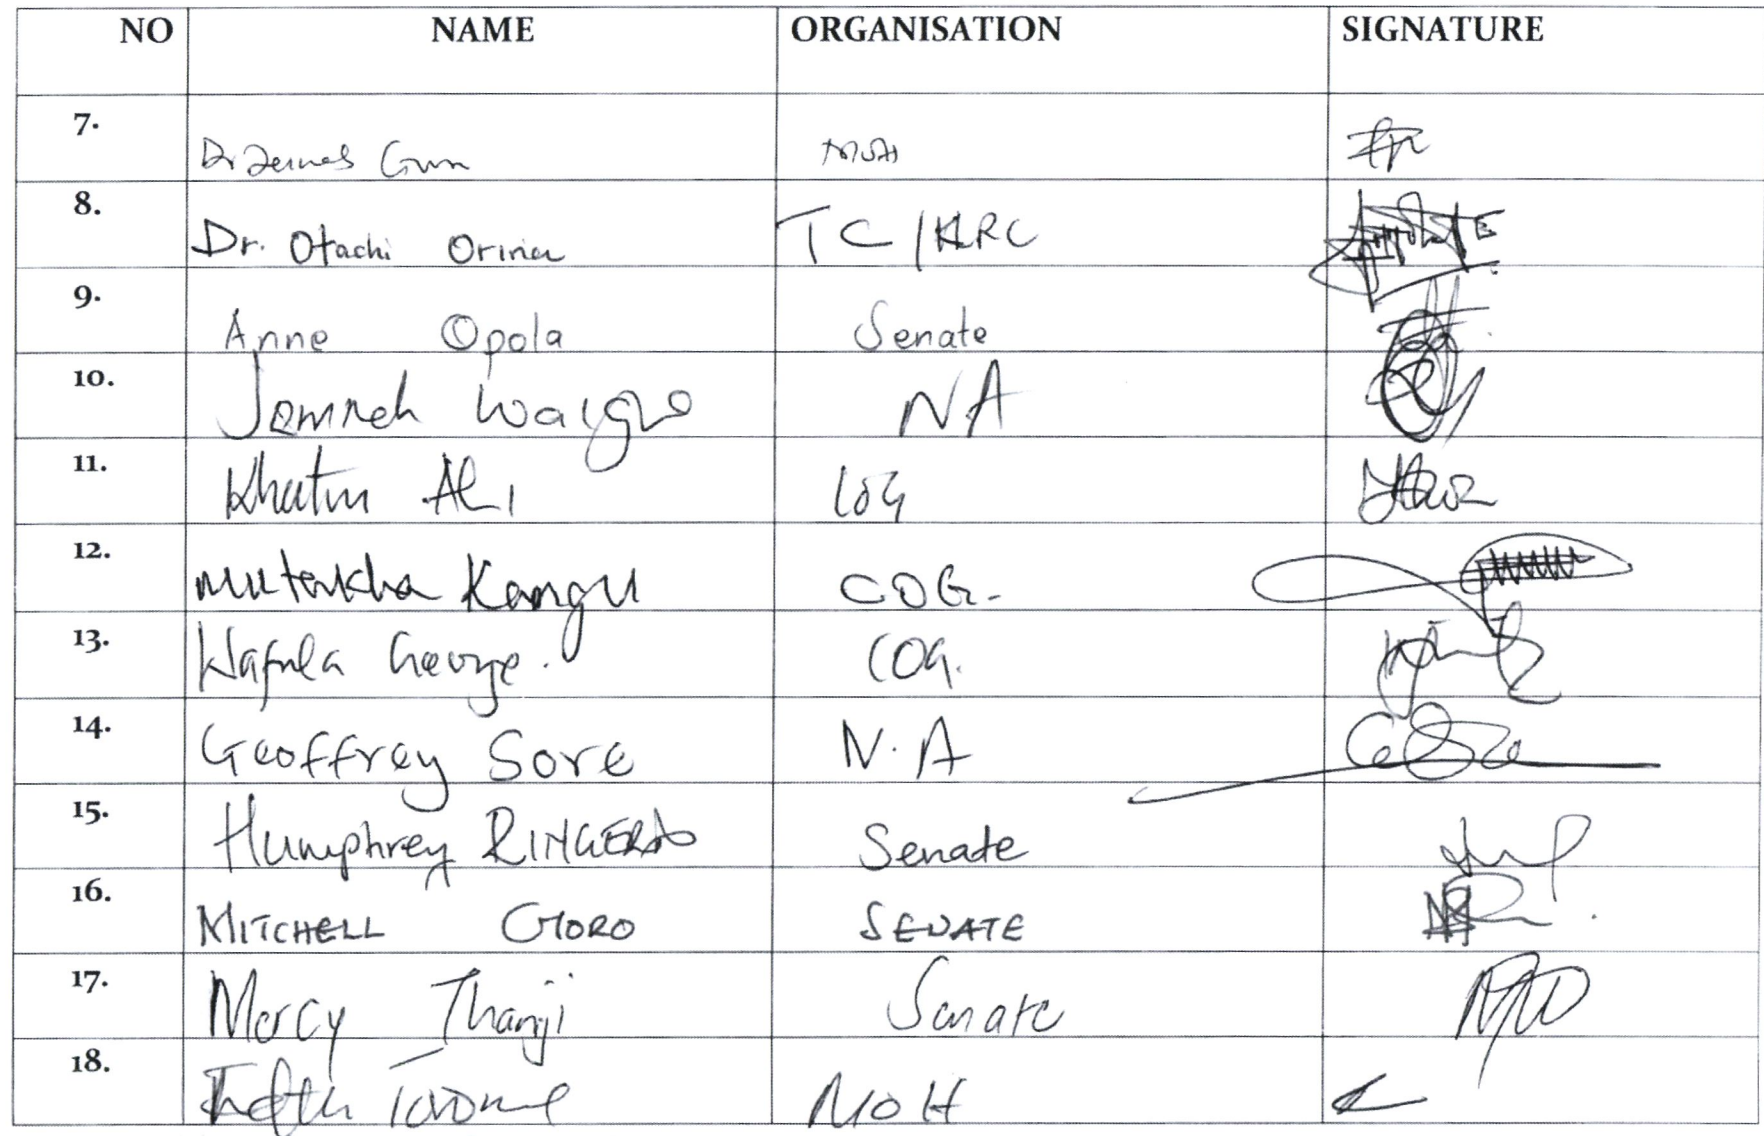 NO NAME ORGANISATION SIGNATURE
7. Dr James MOH
8. Dr. Otachi Orina TC/HRC
9. Anne Opola Senate
10. NA
11. Khatin ALI COG
12. Mutakha Kangu COG.
13. Wafula George. COG.
14. Geoffrey Sore N.A
15. Humphrey RINGERA Senate
16. MITCHELL OTORO SENATE
17. Mercy Thanji Senate
18. MOH